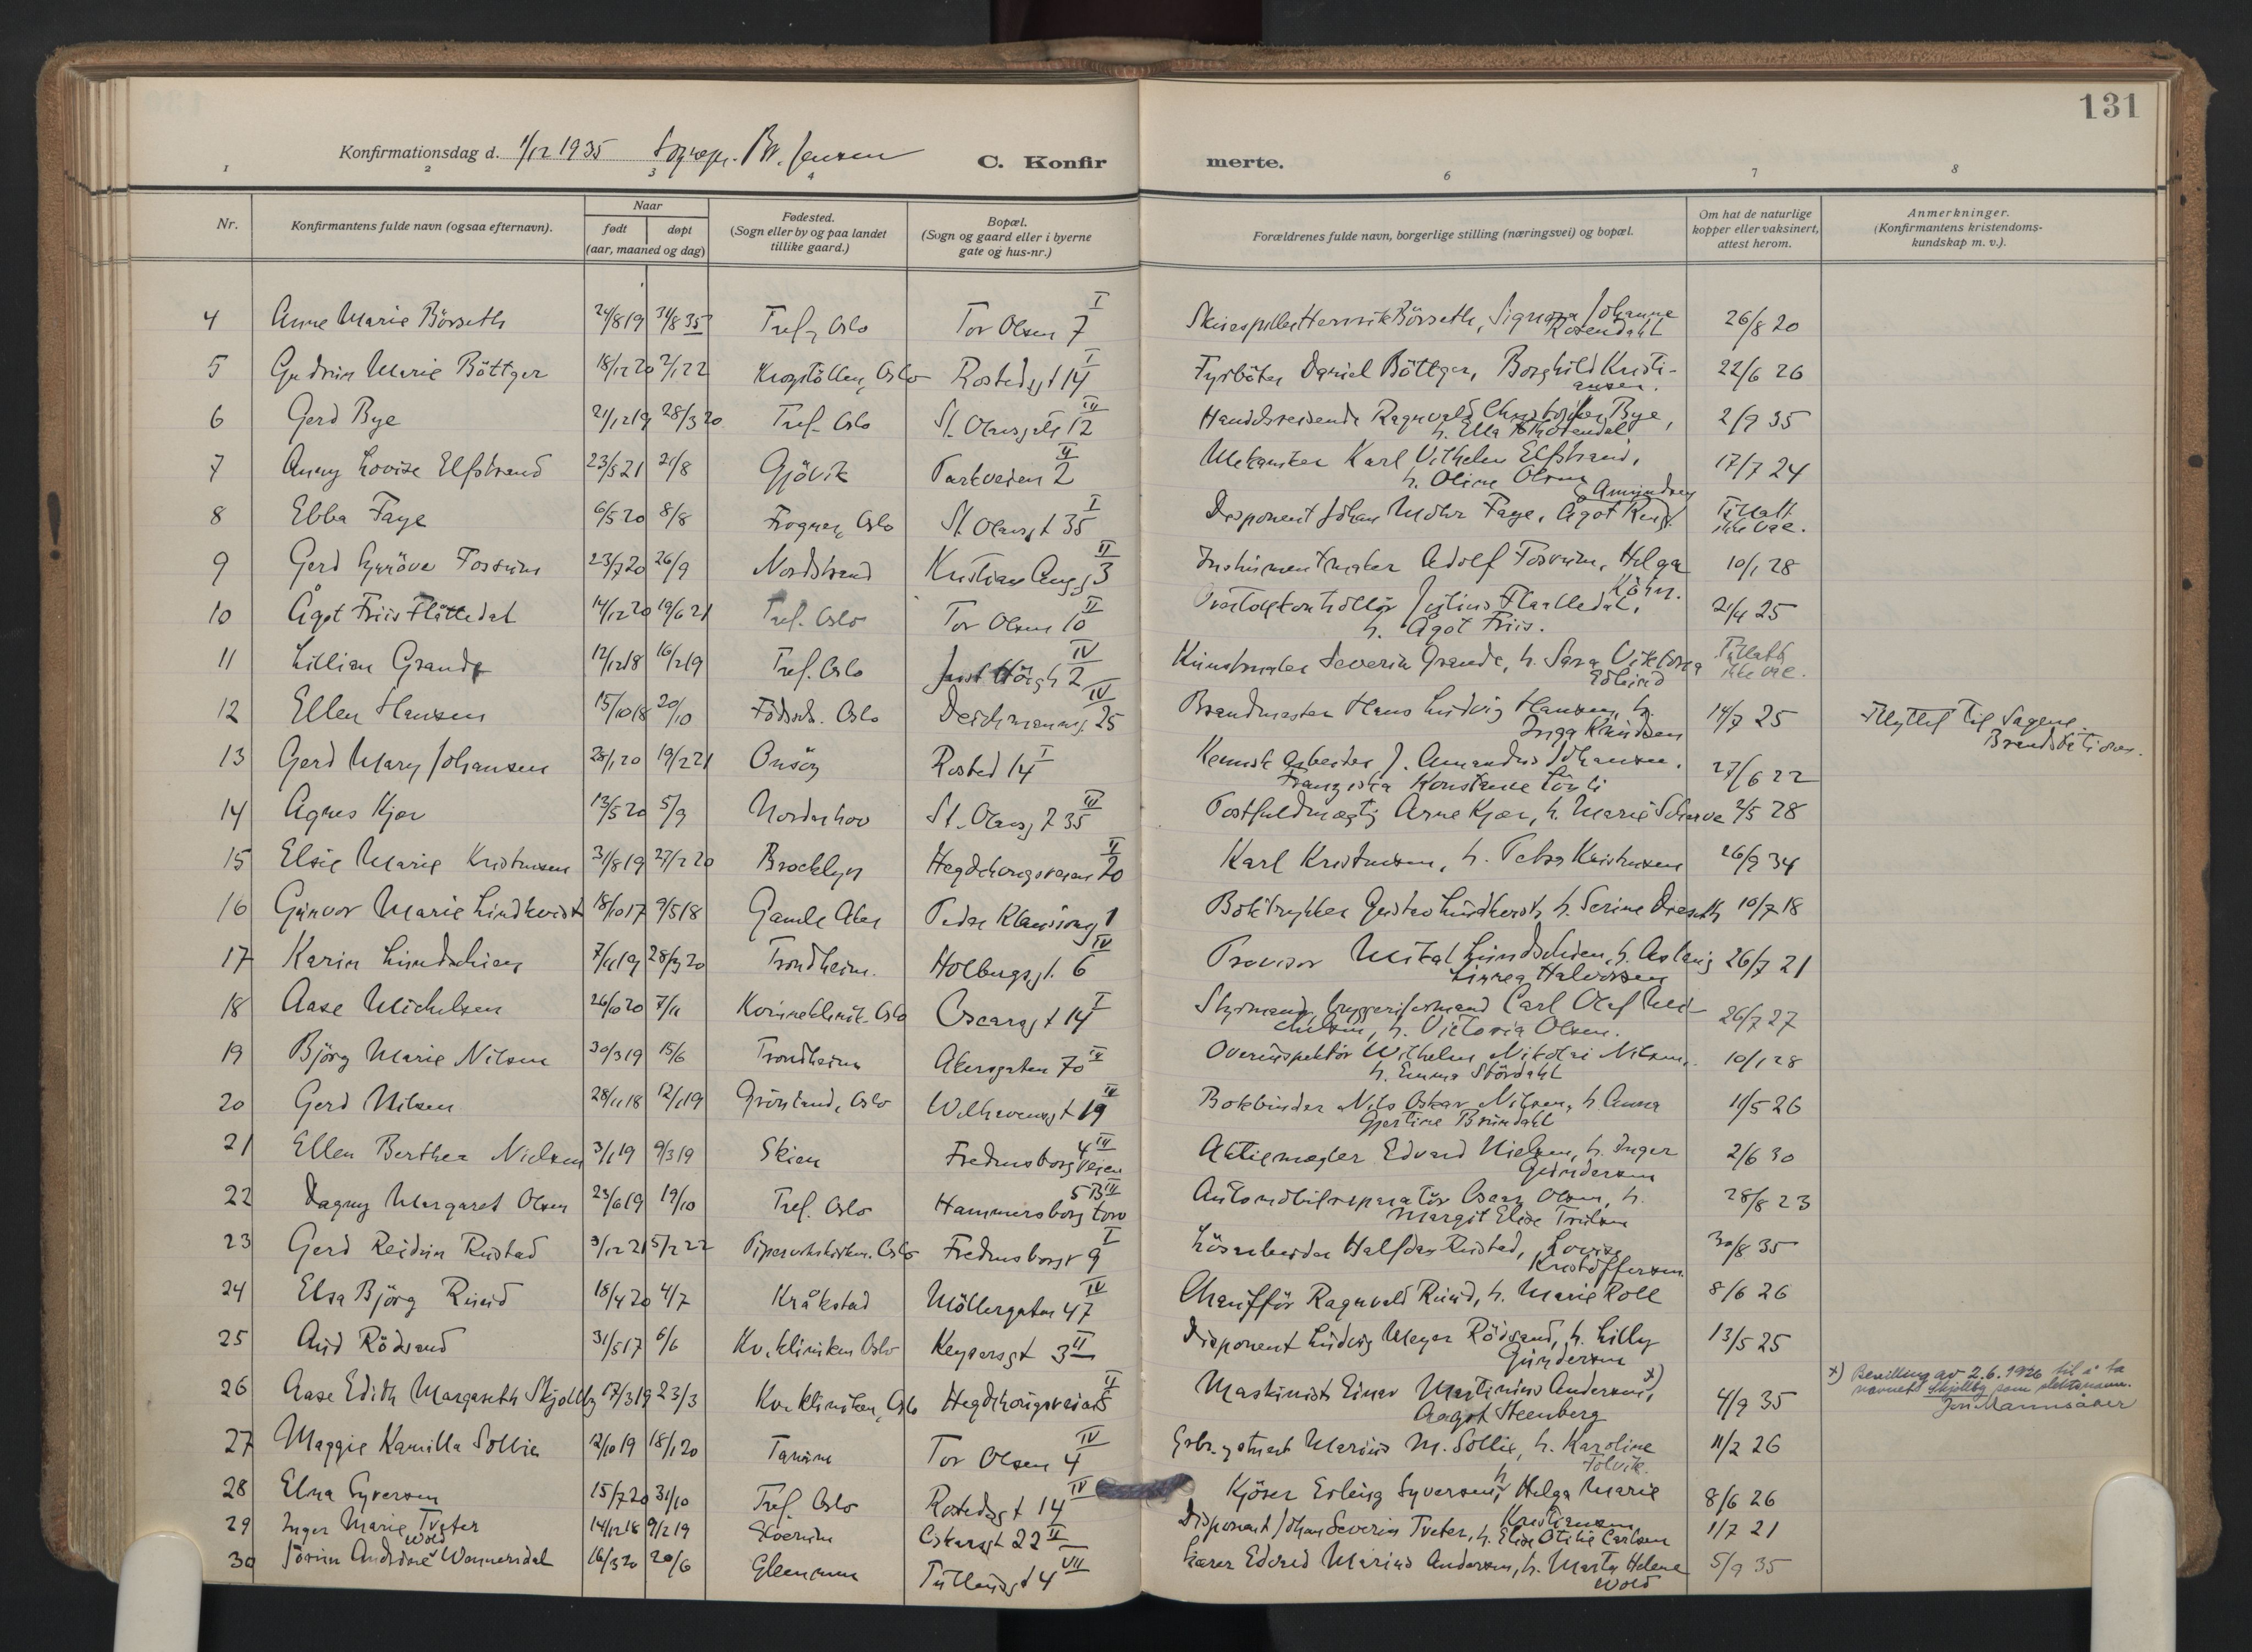 131
Konfirmationsdag d. 1/12 1935 Sognepr. Jensen C. Konfir merte.
1 2 3 4 6 7 8
Nr. Konfirmantens fulde navn (ogsaa efternavn). Naar født døpt (aar, maaned og dag) Fødested. (Sogn eller by og paa landet tillike gaard.) Bopæl. (Sogn og gaard eller i byerne gate og hus-nr.) Forældrenes fulde navn, borgerlige stilling (næringsvei) og bopæl. Om hat de naturlige kopper eller vaksinert, attest herom. Anmerkninger. (Konfirmantens kristendoms-kundskap m. v.).
4 Anne Marie Börseth 24/8 19 31/8 35 Tref., Oslo Tor Olsen 7 I Skuespiller Henrik Börseth, Signora Johanne Rosendahl 26/8 20
5 Gudrun Marie Böttger 18/12 20 2/1 22 Krogstöllen, Oslo Rostedsgt 14 I Fyrböter Daniel Böttger, Borghild Kristiansen. 22/6 26
6 Gerd Bye 21/12 19 28/3 20 Tref. Oslo St. Olavsgate 12 III Handelsreisende Ragnvald Christopher Bye, h. Ella 2/9 35
7 Anny Lovise Elfstrand 23/5 21 21/8 Gjövik Parkveien 2 II Mekaniker Karl Vilhelm Elfstrand, h. Oline Olsen 17/7 24
8 Ebba Faye 6/5 20 8/8 Frogner, Oslo St. Olavsgt 35 I Disponent Johan Mohr Faye, Ågot Amundsen Tillatt ikke vac.
9 Gerd Synöve Fossum 23/7 20 26/9 Nordstrand Kristian Augg. 3 II Instrumentmaker Adolf Fossum, Helga Köhn. 10/1 28
10 Ågot Friis Flåttedal 14/12 20 19/6 21 Tref. Oslo Tor Olsen 10 II Overtolkontrollör Julius Flaattedal, h. Ågot Friis. 21/4 25
11 Lillian Grande 12/12 18 16/2 19 Tref. Oslo Just Höeg 2 IV Kunstmaler Severin Grande, h. Sara Viktoria Edlund Tillatt ikke vac.
12 Ellen Hansen 15/10 18 20/10 Födsels. Oslo Deichmansg. 25 IV Brandmester Hans Ludvig Hansen, h. Inga Knudsen 14/7 25 Flyttet til Sagene Brandstation.
13 Gerd Mary Johansen 28/1 20 19/2 21 Onsöy Rosted 14 I Kemisk arbeider J. Amandus Johansen, Franziska Konstanse Lönli 27/6 22
14 Agnes Kjær 13/5 20 5/9 Norderhov St. Olavsg 35 III Postfuldmægtig Arne Kjær, h. Marie Scharve 2/5 28
15 Elsie Marie Kristensen 31/8 19 27/2 20 Brooklyn Hegdehaugsveien 20 II Karl Kristensen, h. Petra Kristensen 26/9 34
16 Gunvor Marie Lindkvist 18/10 17 9/5 18 Gamle Aker Peder Klausöns g 1 Boktrykker Gustav Lindkvist, h. Serine Dreseth 10/7 18
17 Karin Lundschien 7/11 19 28/3 20 Trondheim. Holbergsgt. 6 IV Provisor Mikal Lundschien, h. Aslaug Linnea Halvorsen 26/7 21
18 Aase Michelsen 26/10 20 7/11 Kvinneklinik. Oslo Oscarsgt 14 I Styrmand, bryggeriformand Carl Olaf Michelsen, h. Victoria Olsen. 26/7 27
19 Björg Marie Nilsen 30/3 19 15/6 Trondheim Akersgaten 70 IV Overinspektör Wilhelm Nikolai Nilsen, h. Emma Stördahl 10/1 28
20 Gerd Nilsen 28/11 18 12/1 19 Grönland, Oslo Welhavensgt 19 IV Bokbinder Nils Oskar Nilsen, h. Anna Gjertine Brundahl 11/5 26
21 Ellen Berthea Nielsen 3/1 19 9/3 19 Skien Fredensborgveien 4 III Aktiemegler Edvard Nielsen, h. Inger Gundersen 2/6 30
22 Dagny Margaret Olsen 23/6 19 19/10 Tref. Oslo Hammersborg torv 5 B III Automobilreparatör Oscar Olsen, h. Margit Elise Trulsen 28/8 23
23 Gerd Reidun Rustad 3/12 21 5/2 22 Pipervikskirken. Oslo Fredensborgv 9 I Lösarbeider Halfdan Rustad, Lovise Kristoffersen 30/8 35
24 Elsa Björg Ruud 18/4 20 4/7 Kråkstad Möllergaten 47 IV Chaufför Ragnvald Ruud, h. Marie Roll 8/6 26
25 Aud Rödsand 31/5 17 6/6 Kv. kliniken Oslo Keysersgt 3 II Disponent Ludvig Meyer Rödsand, h. Lilly Gundersen 13/5 25
26 Aase Edith Margareth Skjolly 17/3 19 23/3 Kv. kliniken, Oslo Hegdehaugsveien 5 II Maskinist Einar Martinius Andersen x), Aagot Steenberg 4/9 35 x) Bevilling av 2.6.1926 til å ta navnet Skjolly som slektsnavn. Jon Mannsåker
27 Maggie Kamilla Sollie 12/10 19 18/1 20 Tanum Tor Olsen 4 IV Marius M. Sollie, h. Karoline Tolvik. 11/2 26
28 Elna Syversen 15/7 20 31/10 Tref. Oslo Rostedsgt 14 IV Kjörer Erling Syversen, h. Helga Marie Kristiansen 8/6 26
29 Inger Marie Tveter 14/12 18 9/2 19 Skoerum Oskarsgt 22 II Disponent Johan Severin Tveter, h. Elise Otilie Carlsen 1/7 21
30 Jörun Andrine Wold Wennersdal 16/3 20 20/6 Glemmen Tullinsgt 4 VII Lærer Edvard Marius Andersen, h. Marta Helene Wold 5/9 35